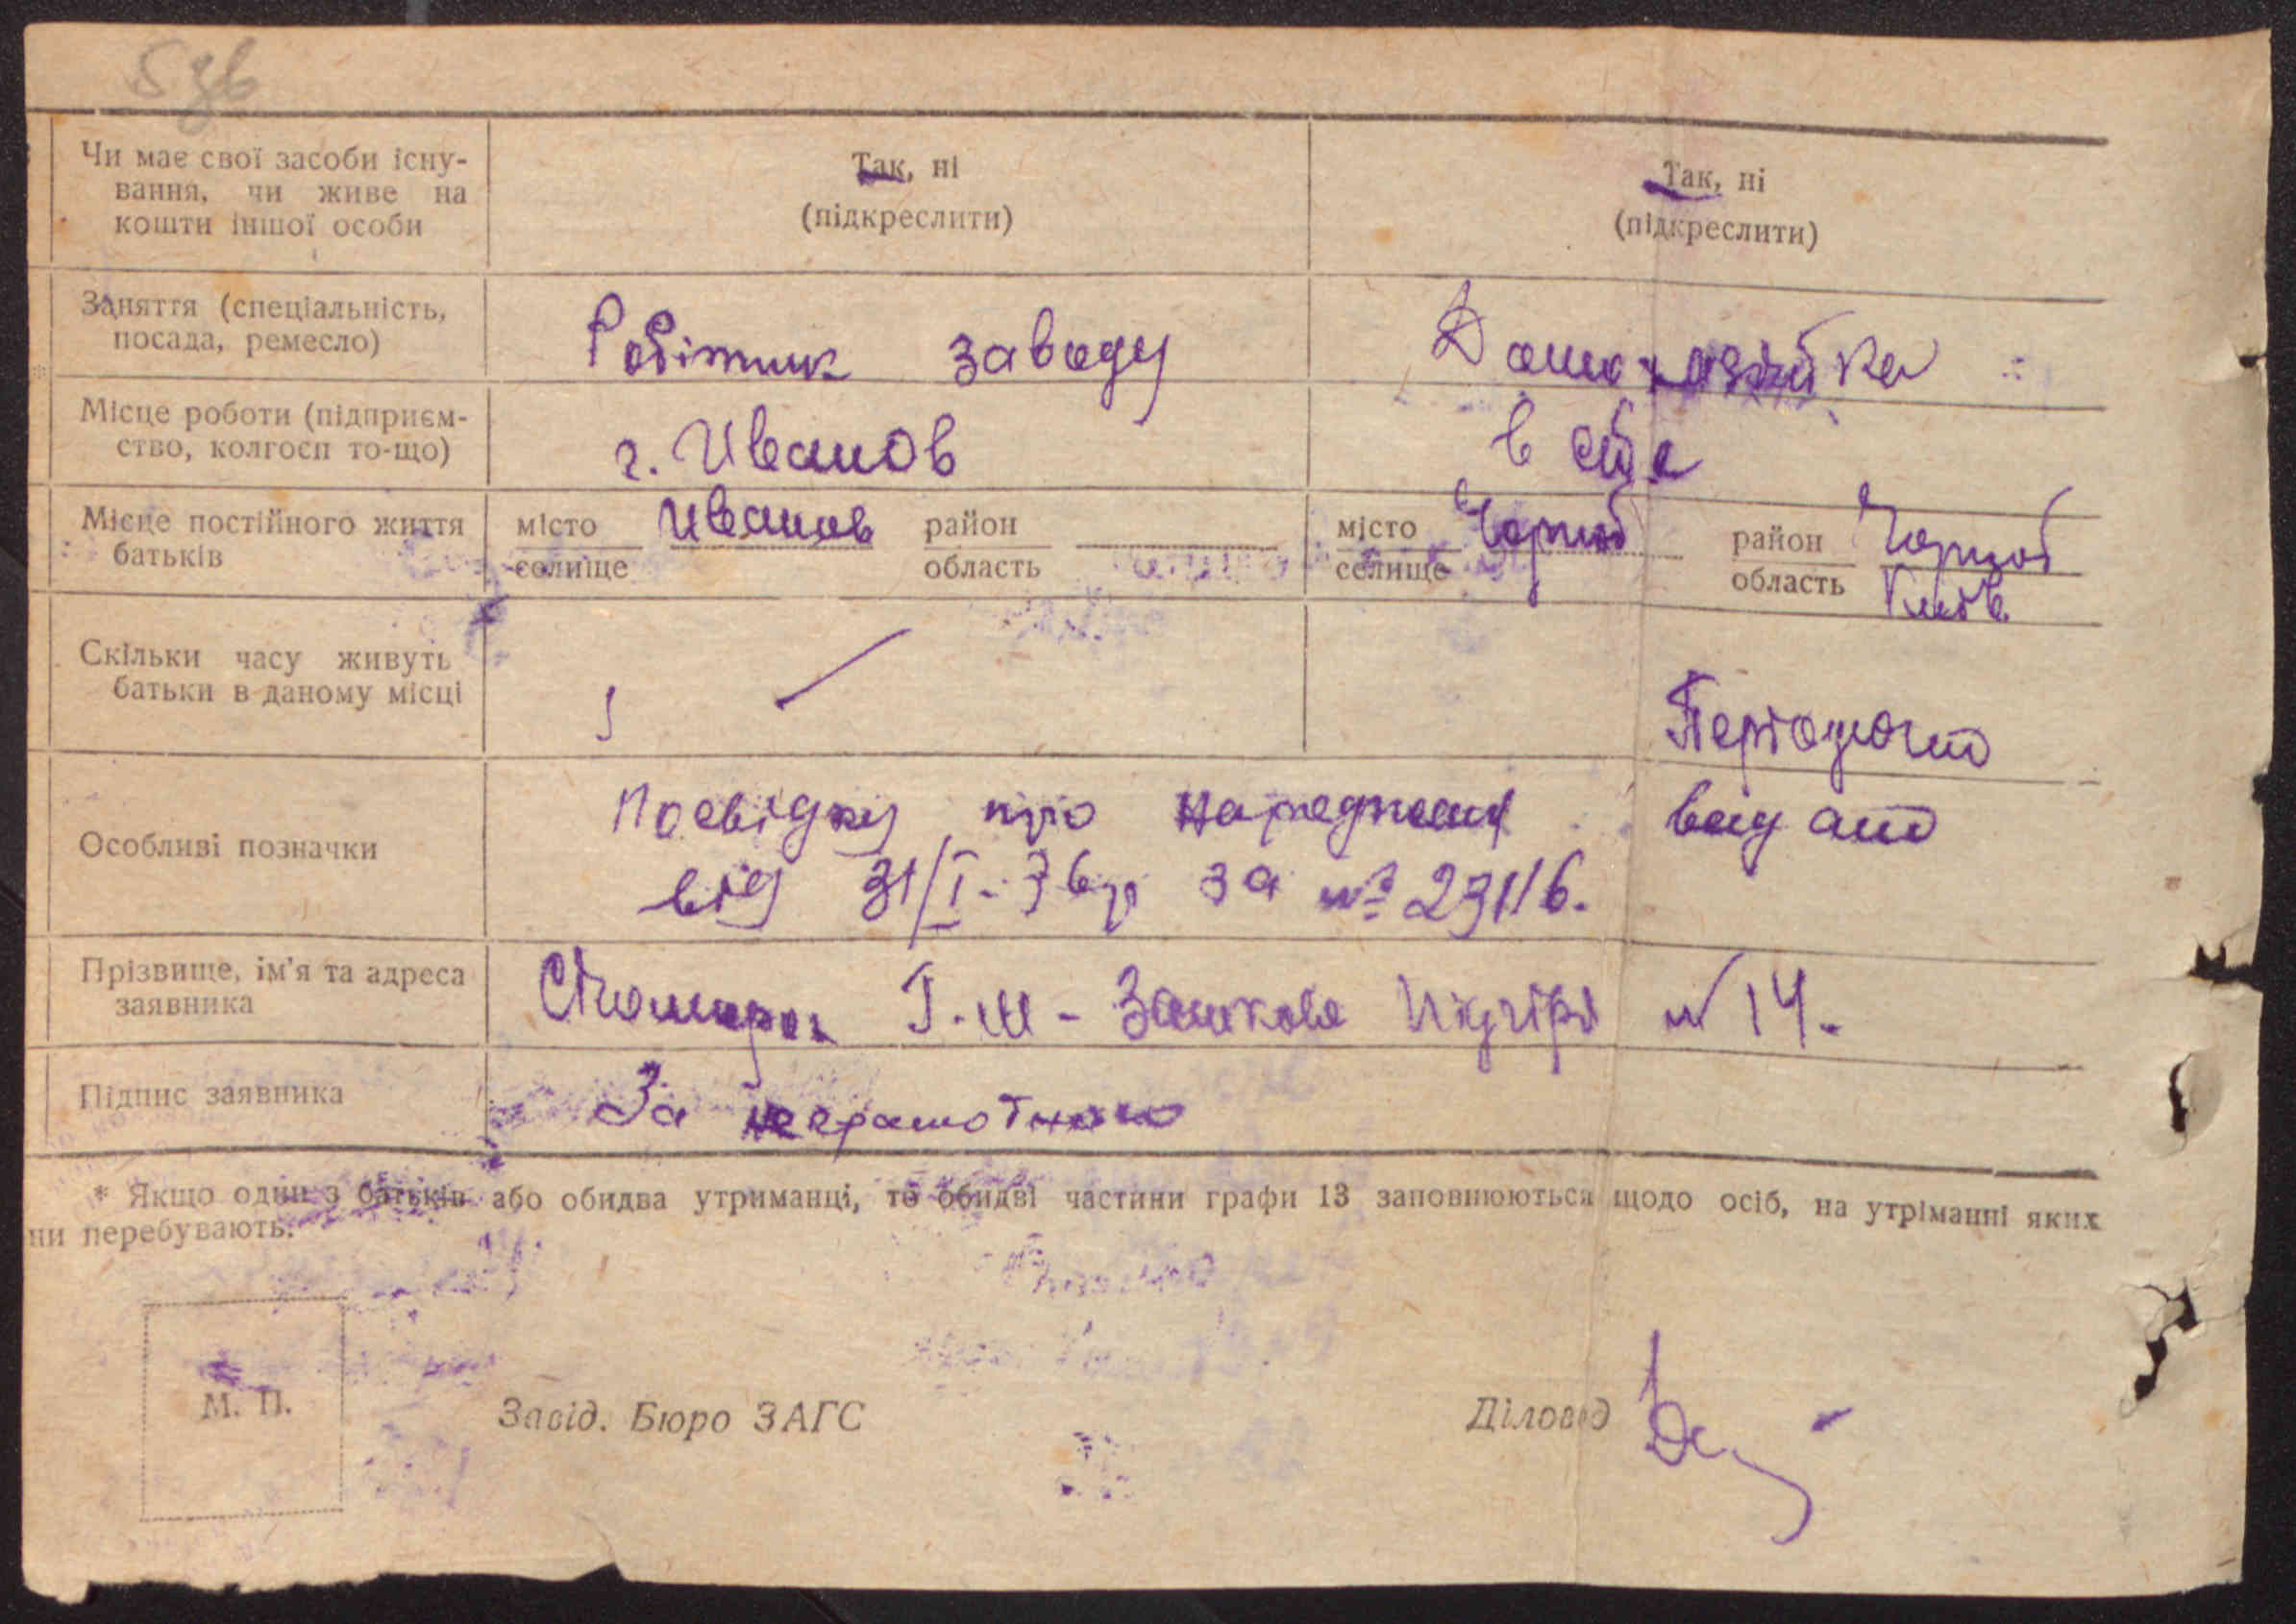 5 зв
Чи має свої засоби існу-
вання, чи живе на
кошти іншої особи
Так, ні
(підкреслити)
Так, ні
(підкреслити)
Заняття (спеціальність,
посада, ремесло)
Робітник заводу
Домохазяйка
Місце роботи (підприєм-
ство, колгосп то-що)
г. Иванов
в себе
Місце постійного життя
батьків
місто
селище
Иванов
район
область
місто
селище
Чорноб
район
область
Чорноб
Київ
Скільки часу живуть
батьки в даному місці
Особливі позначки
Посвідку про народження
від 31/I-36р за № 29116.
видано
Прізвище, ім'я та адреса
заявника
Г.Ш - Замкова Підгірн № 14.
Підпис заявника
За неграмотного
* Якщо один з батьків або обидва утриманці, то обидві частини графи 13 заповнюються щодо осіб, на утріманні яких
ни перебувають.
М. П.
Завід. Бюро ЗАГС
Діловод